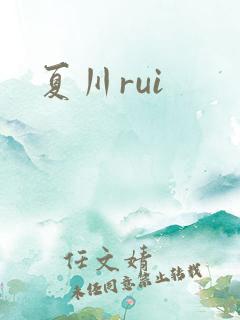 夏川rui
任文婧
未经同意禁止转载